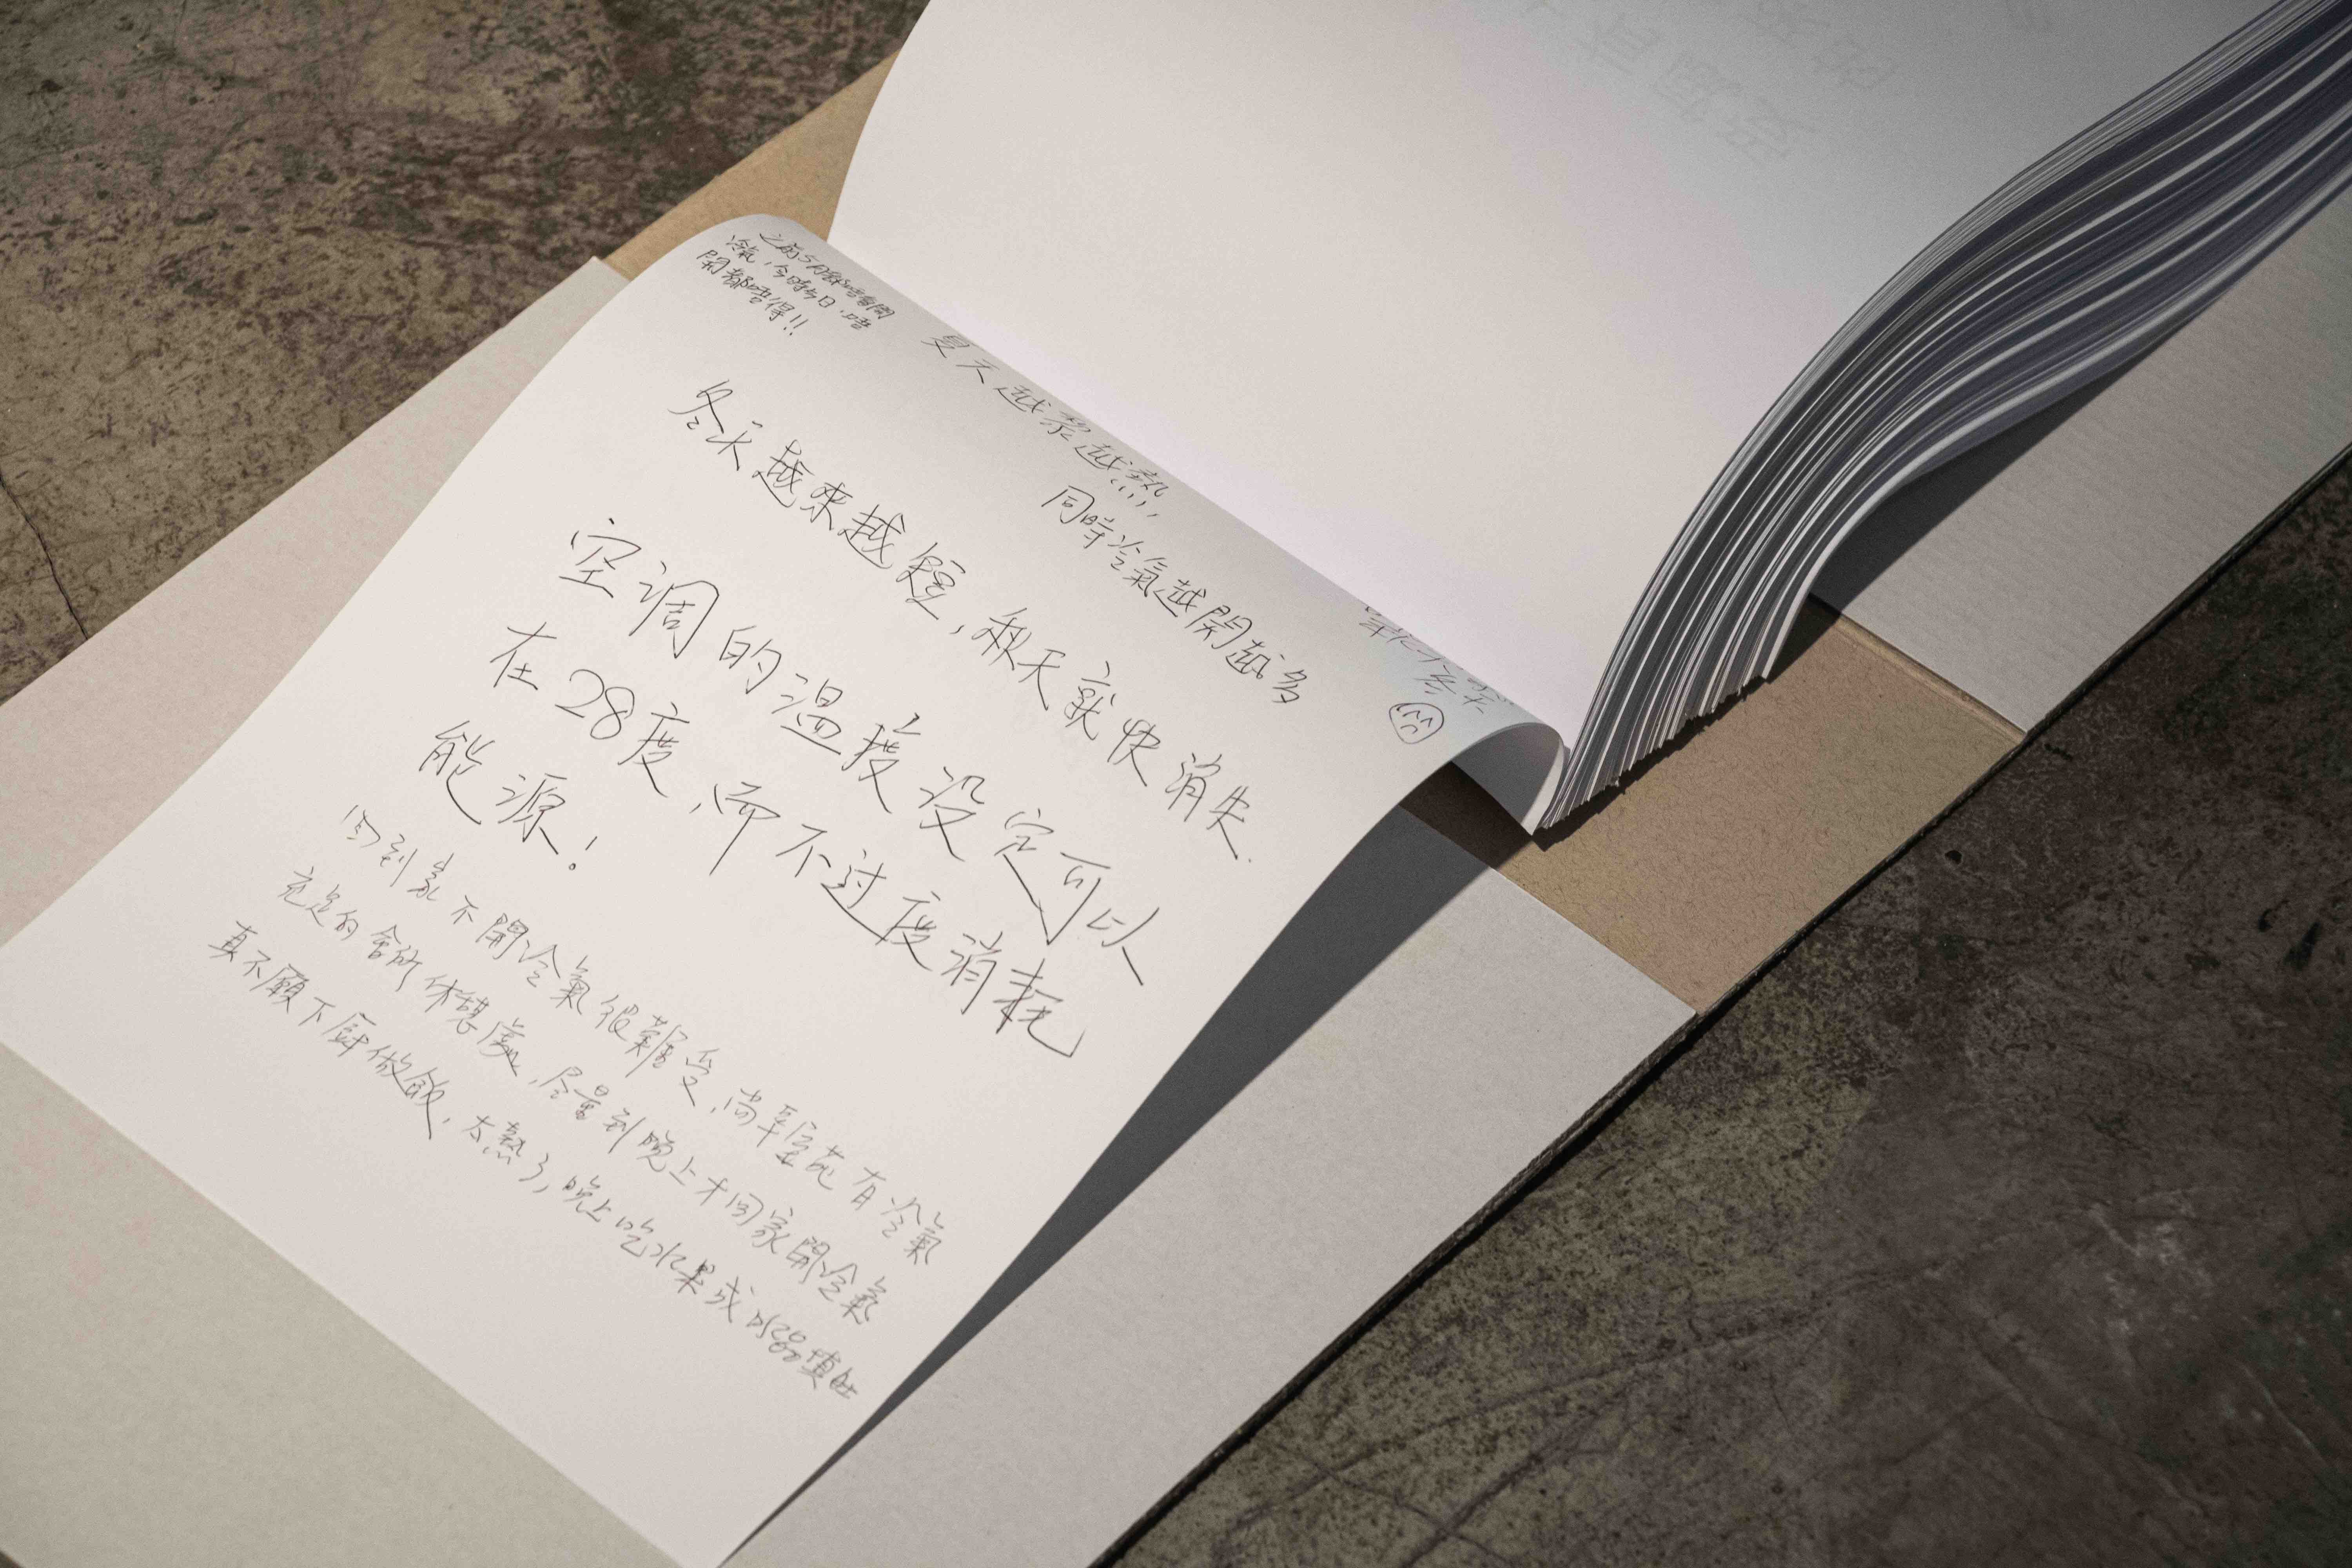 之前5月都唔會開
冷氣,今時今日,唔
開都唔得!!
夏天越黎越熱
同時冷氣越開越多
冬天越來越短,秋天就快消失.
空调的温度设定可以
在28度,而不过度消耗
能源!
回到家不開冷氣很難受,尚翠苑有冷氣
充足的會所休憩處,尽量到晚上才回家開冷氣
真不願下厨做飯,太熱了,晚上吃水果或